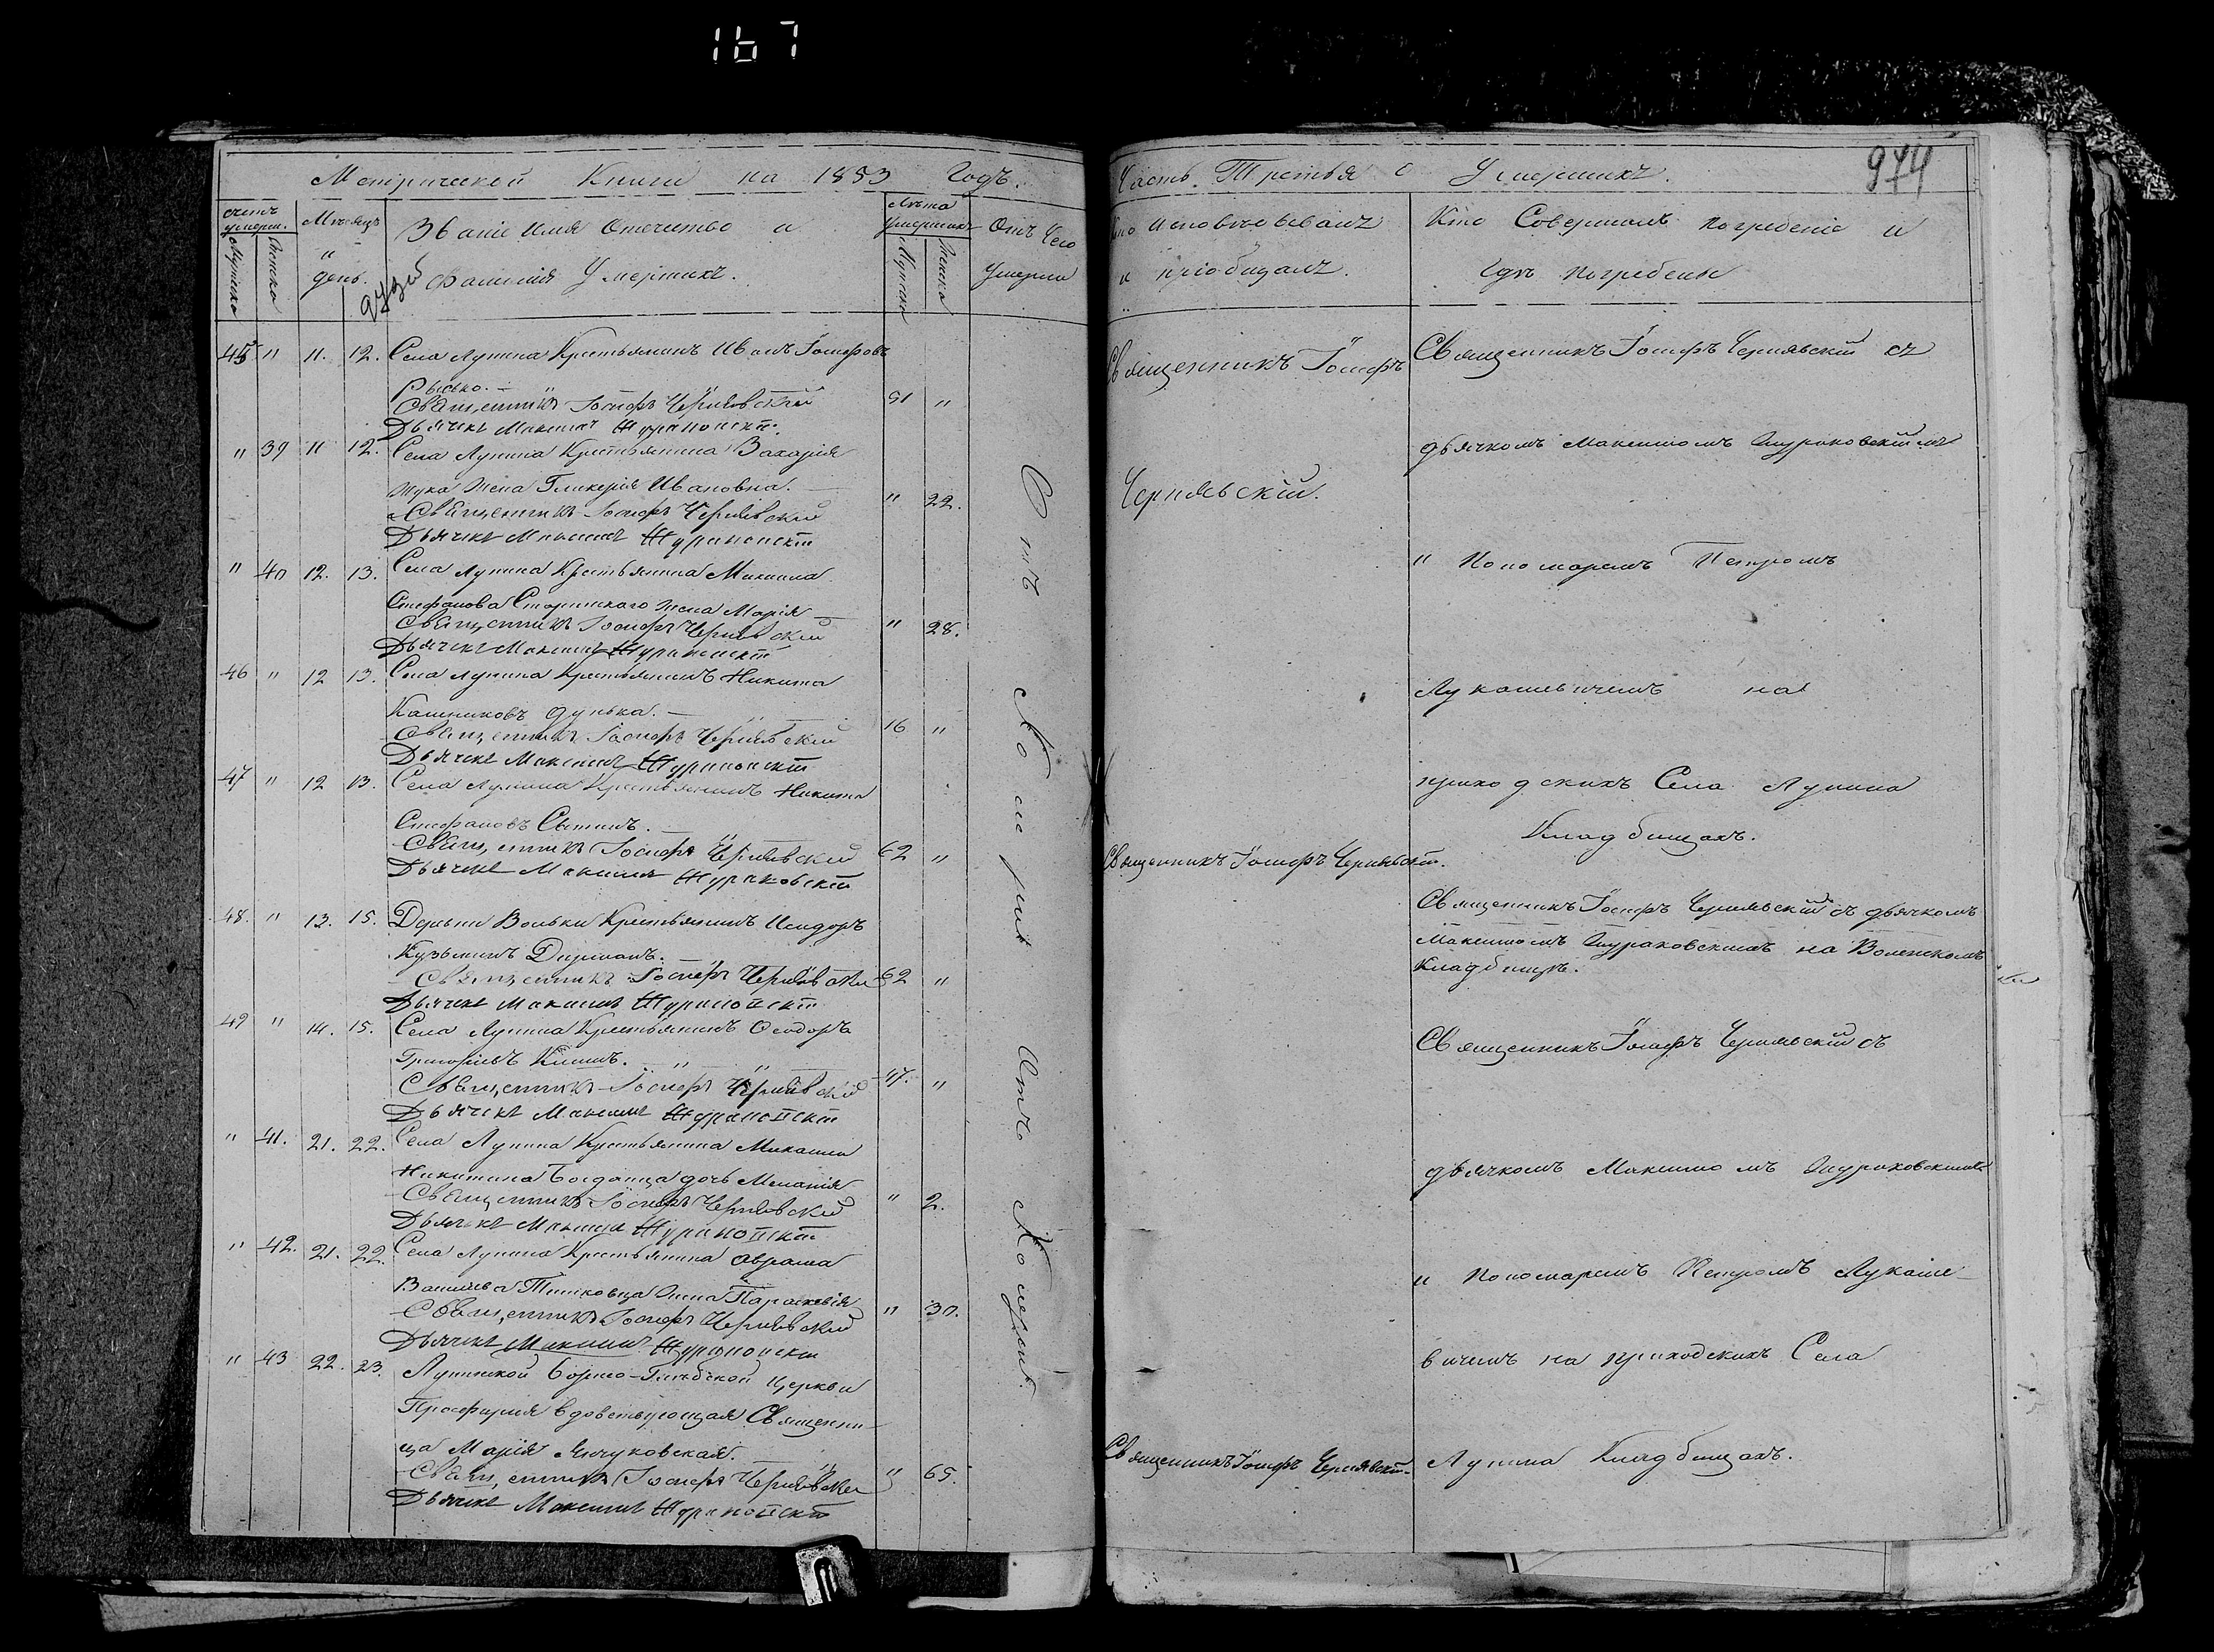 167
Метрической Книги на 1853 Годъ.
счетъ умерш.
Мужска
Женска
Мѣсяцъ
и
день.
Званіе Имя Отчество и
Фамилія Умершихъ.
Лѣта
Умершихъ
Мужска
Женска
Отъ Чего
Умерли
45 " 11. 12. Села Лунина Крестьянинъ Иванъ Іосифовъ
Священникъ Іосифъ Чернявскій 91 "
Дьячекъ Максимъ Жураковскій
" 39 11 12. Села Лунина Крестьянина Захарія
Жука Жена Гликерія Ивановна.
Священникъ Іосифъ Чернявскій " 22.
Дьячекъ Максимъ Жураковскій
" 40 12. 13. Села Лунина Крестьянина Михаила
Стефанова жена Марія
Священникъ Іосифъ Чернявскій " 28.
Дьячекъ Максимъ Жураковскій
46 " 12 13. Села Лунина Крестьянинъ Никита
Священникъ Іосифъ Чернявскій 16 "
Дьячекъ Максимъ Жураковскій
47 " 12 13. Села Лунина Крестьянинъ Никита
Стефановъ
Священникъ Іосифъ Чернявскій 62 "
Дьячекъ Максимъ Жураковскій
48. " 13. 15. Деревни Вольки Крестьянинъ Исидоръ
Кузьминъ
Священникъ Іосифъ Чернявскій 62 "
Дьячекъ Максимъ Жураковскій
49 " 14. 15. Села Лунина Крестьянинъ Ѳеодоръ
Григорьевъ
Священникъ Іосифъ Чернявскій 47. "
Дьячекъ Максимъ Жураковскій
" 41. 21. 22. Села Лунина Крестьянина Михаила
Никитина Богданца дочь Меланія
Священникъ Іосифъ Чернявскій " 2.
Дьячекъ Максимъ Жураковскій
" 42. 21. 22. Села Лунина Крестьянина Аврама
Васильева Жена Параскевія
Священникъ Іосифъ Чернявскій " 30.
Дьячекъ Максимъ Жураковскій
" 43 22. 23. Лунинской Борисо-Глѣбской Церкви
Просфирня вдовствующая Священни-
ца Марія
Священникъ Іосифъ Чернявскій " 65.
Дьячекъ Максимъ Жураковскій
Отъ Холеры
Отъ Холеры.
Часть Третья о Умершихъ.
974
Кто Исповѣдовалъ
и пріобщалъ.
Кто Совершалъ погребеніе и
гдѣ погребены
Священникъ Іосифъ
Чернявскій.
Священникъ Іосифъ Чернявскій.
Священникъ Іосифъ Чернявскій.
Священникъ Іосифъ Чернявскій съ
дьячкомъ Максимомъ Жураковскимъ
и Пономаремъ Петромъ
Лукашевичемъ на
приходскихъ Села Лунина
Кладбищахъ.
Священникъ Іосифъ Чернявскій съ дьячкомъ
Максимомъ Жураковскимъ на
Кладбищѣ.
Священникъ Іосифъ Чернявскій съ
дьячкомъ Максимомъ Жураковскимъ
и Пономаремъ Петромъ Лукаше-
вичемъ на приходскихъ Села
Лунина Кладбищахъ.